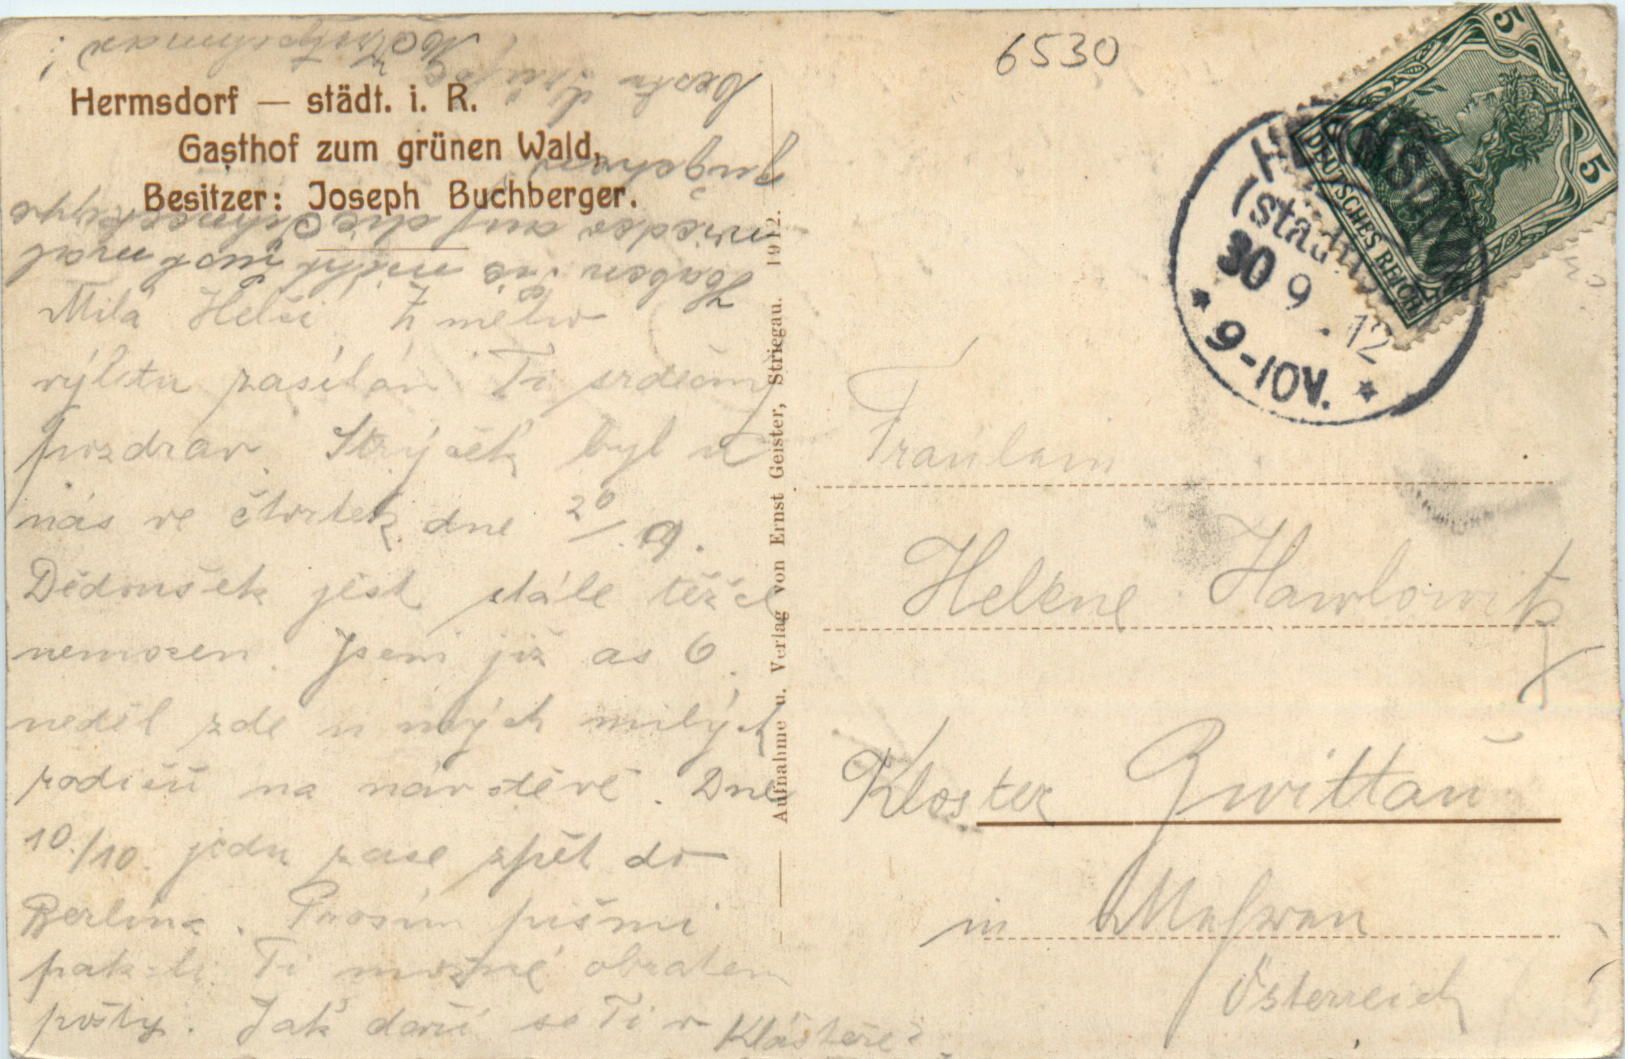 6530
Hermsdorf — städt. i. R.
Gasthof zum grünen Wald,
Besitzer: Joseph Buchberger.
Milá Helči! Z mého
výletu zasílám Ti srdečný
pozdrav. Strýček byl u
nás ve čtvrtek dne 26/9.
Dědoušek jest stále těžce
nemocen. Jsem již as 6
neděl zde u mých milých
rodičů na návštěvě. Dne
10./10. jedu zase zpět do
Berlína. Prosím piš mi
pak-li Ti možné obratem
pošty. Jak daří se Ti v Klášteře?
Aufnahme u. Verlag von Ernst Geister, Striegau. 1912.
DEUTSCHES REICH
5
5
(städt.
30 9. 12
* 9-10V. *
Fräulein
Helene Hawlowitz
Kloster Zwittau
in Mähren
Österreich